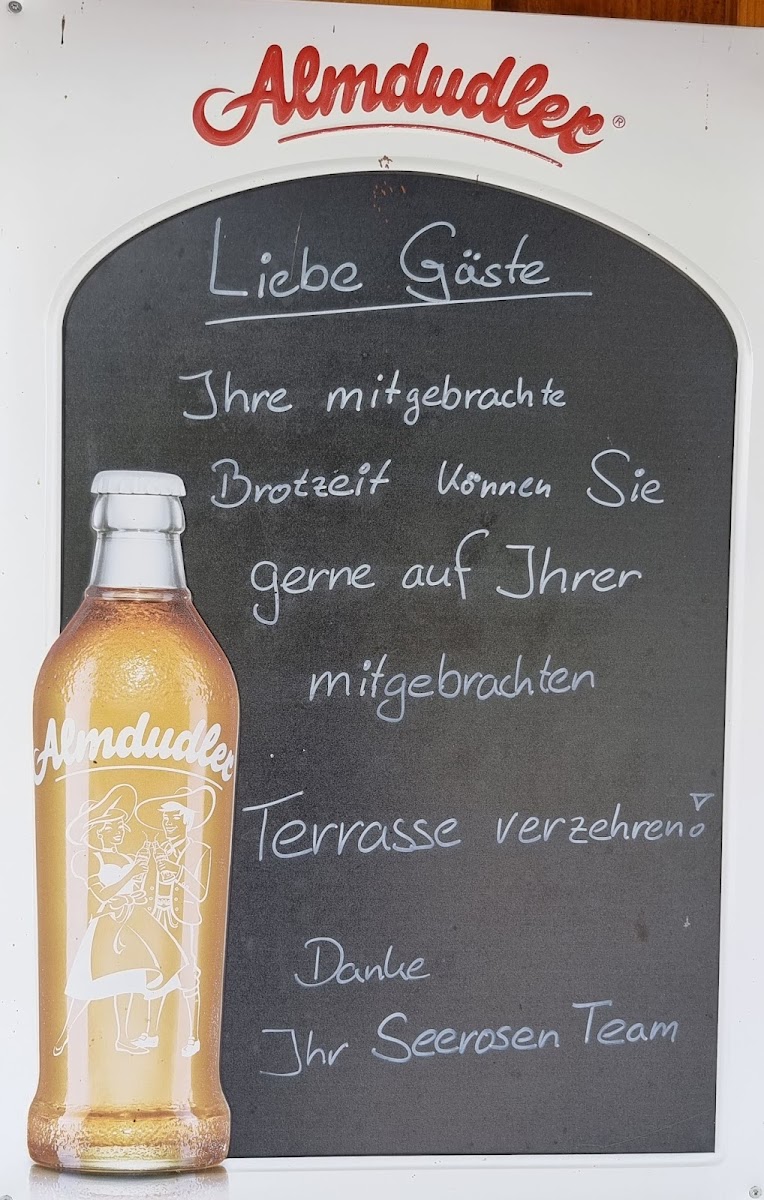 Almdudler®
Liebe Gäste
Ihre mitgebrachte
Brotzeit können Sie
gerne auf Ihrer
mitgebrachten
Terrasse verzehren!
Danke
Ihr Seerosen Team
Almdudler